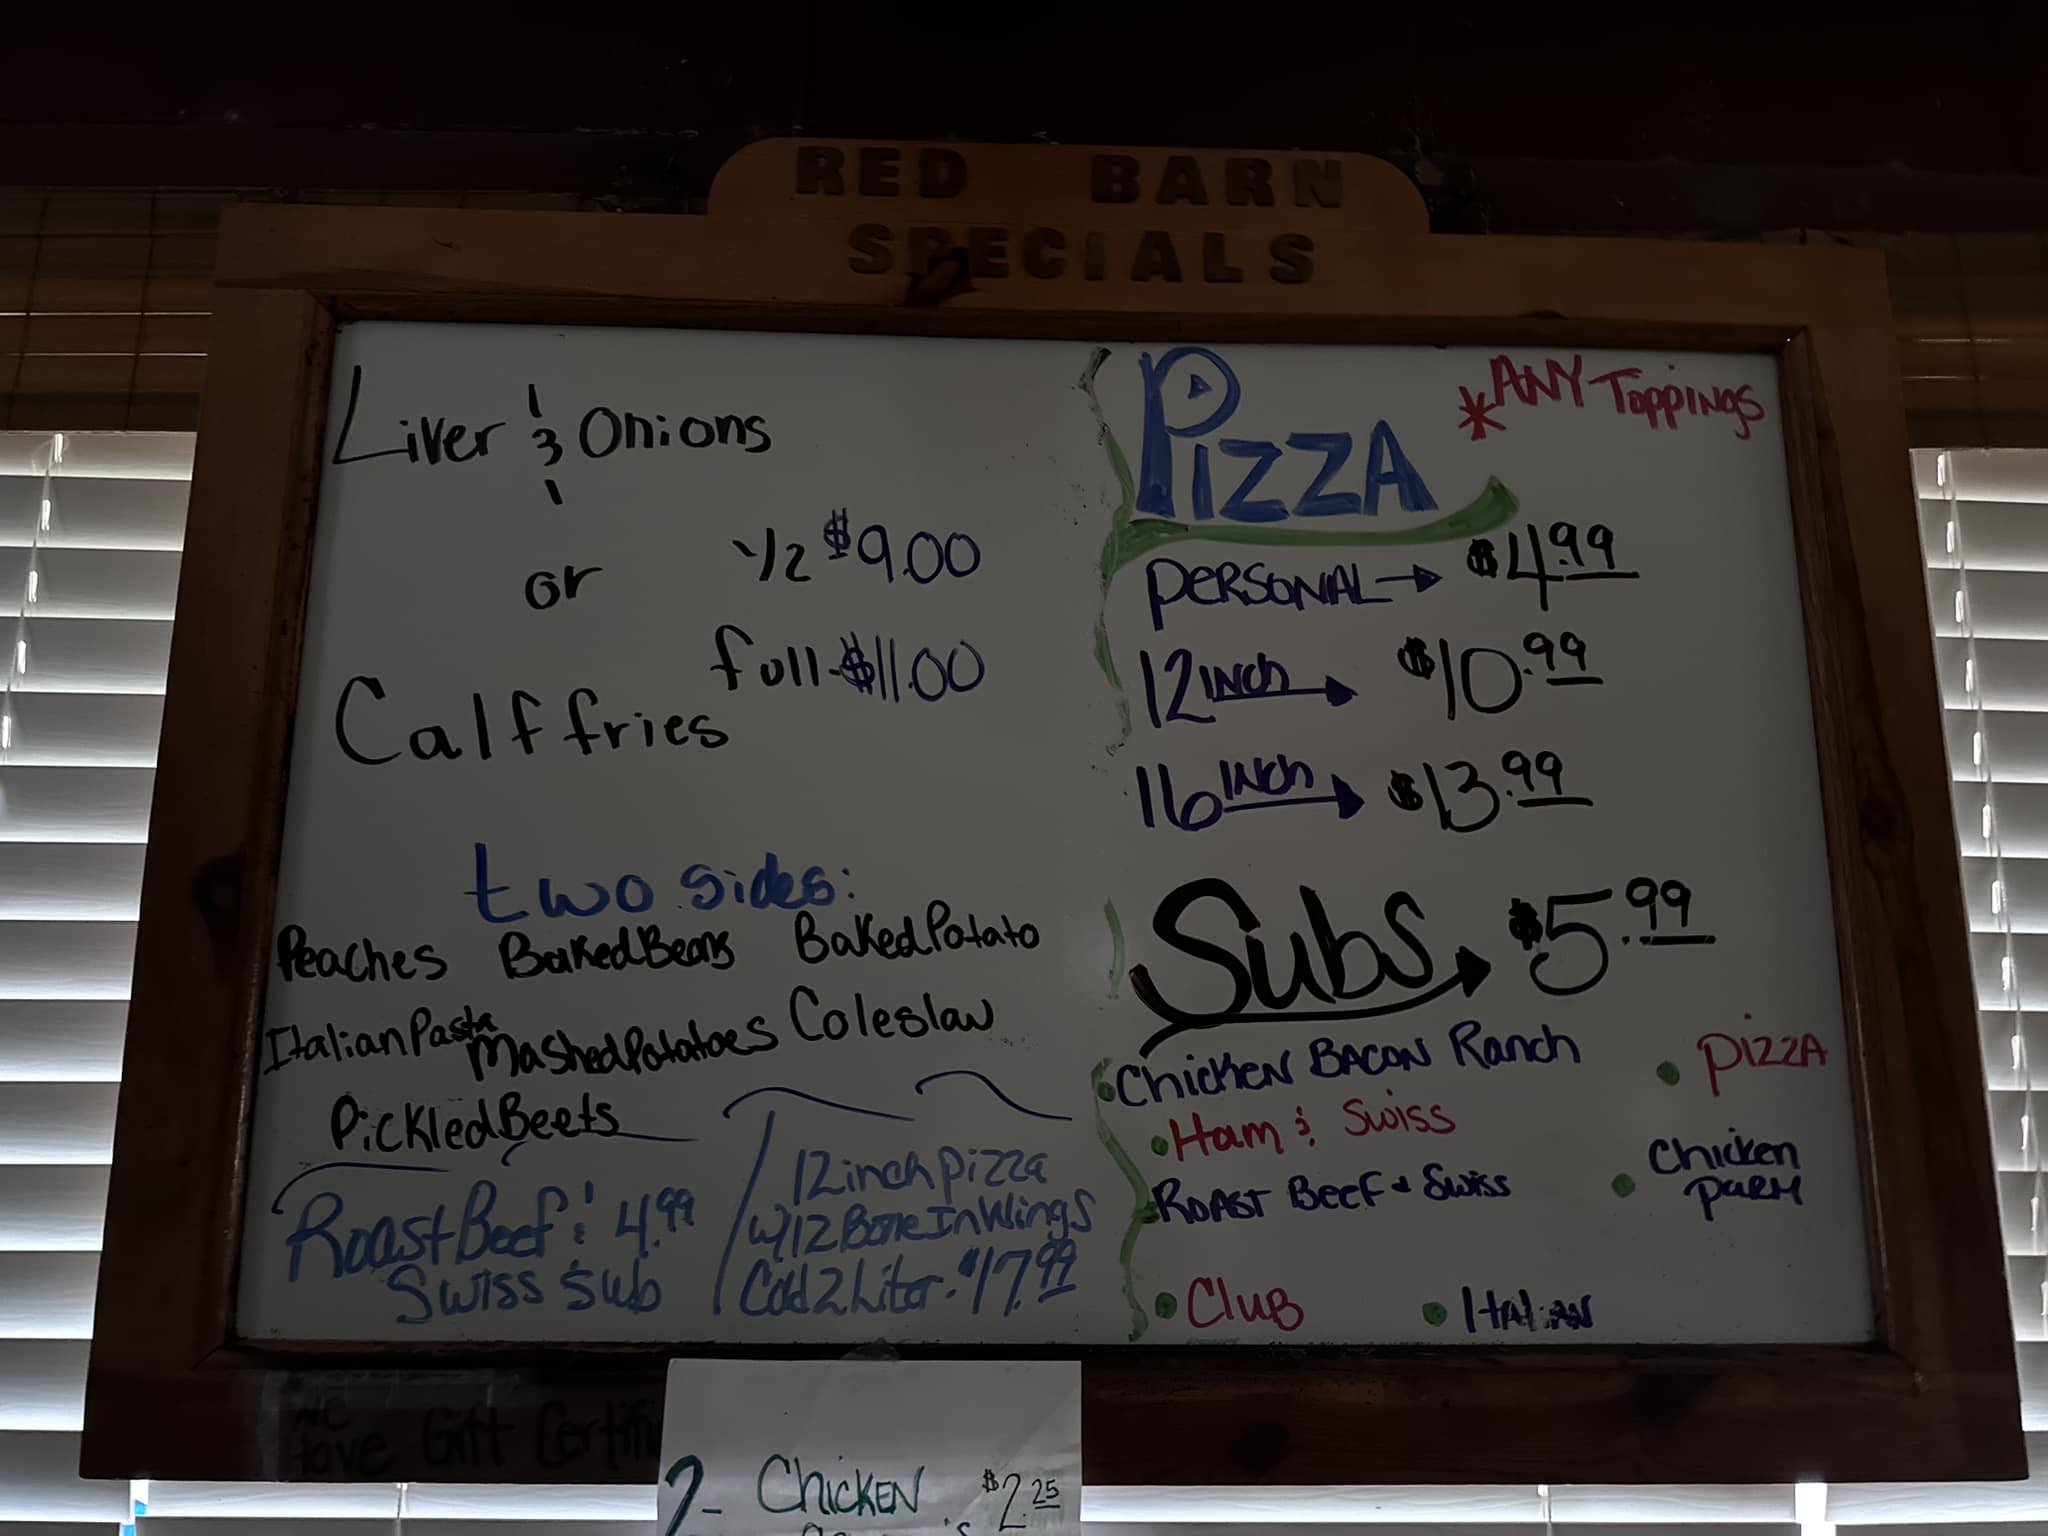 RED BARN
SPECIALS
Liver & Onions
or
1/2 $9.00
full-$11.00
Calf fries
two sides:
Peaches Baked Beans Baked Potato
Italian Pasta Mashed Potatoes Coleslaw
Pickled Beets
Roast Beef & 4.99
Swiss Sub
12 inch pizza
w/12 Bone In Wings
Cold 2 Liter. $17.99
Pizza
*ANY Toppings
Personal → $4.99
12 inch → $10.99
16 inch → $13.99
Subs → $5.99
• Chicken Bacon Ranch
• Pizza
• Ham & Swiss
• Roast Beef & Swiss
• Chicken Parm
• Club • Italian
We
Have Gift
2- Chicken $2.25